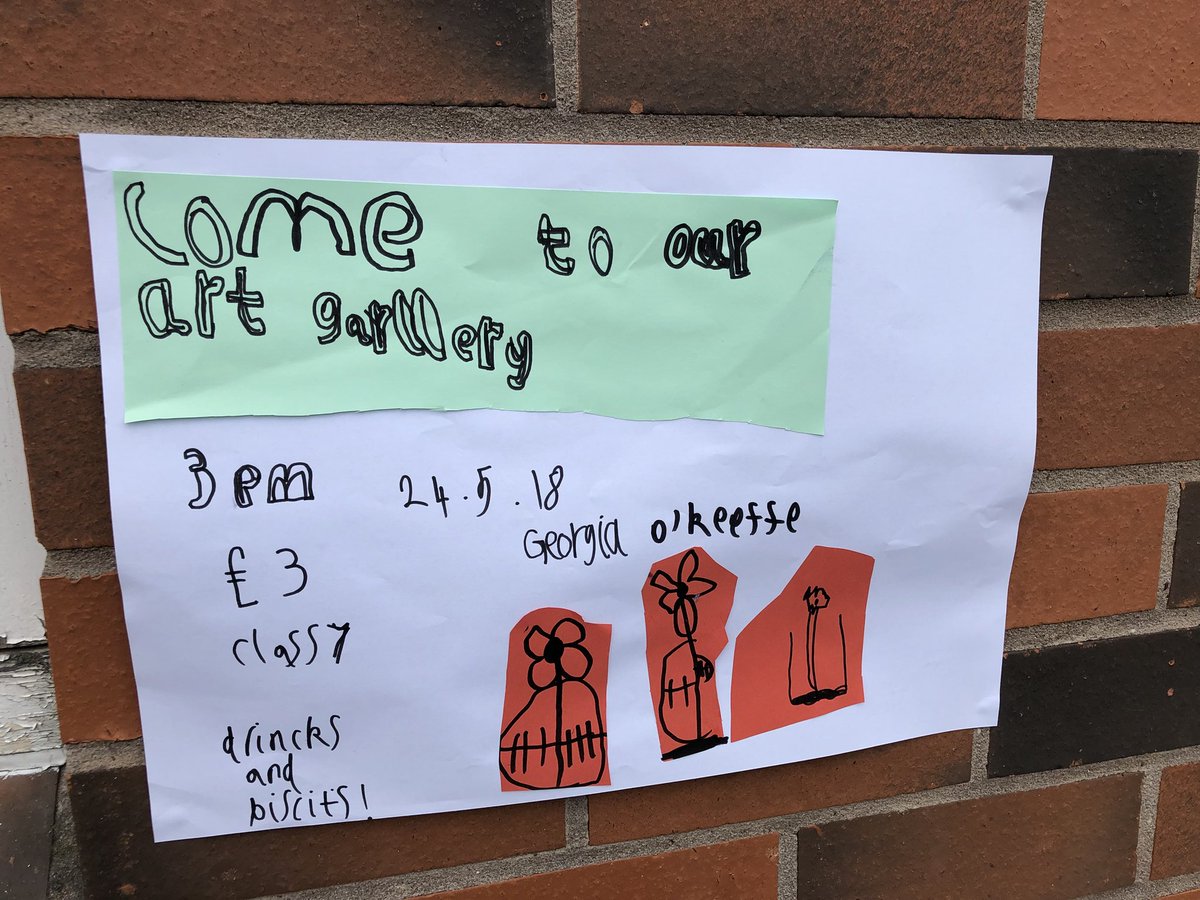 come to our
art garllery
3 pm 24.5.18
Georgia o'keeffe
£3
class 7
drincks
and
biscits!